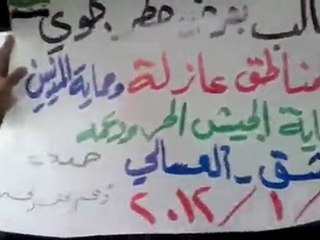 الب بفرض حظر جوي
مناطق عازلة وحماية المدنيين
اية الجيش الحر ودعمه
شق - العسالي
٢٠١٢ / ١ /